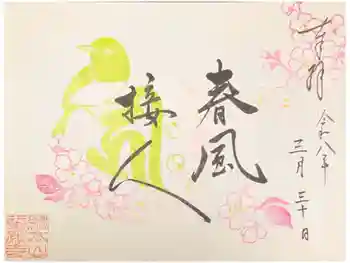 奉拝 令和八年
三月三十日
春風
接人